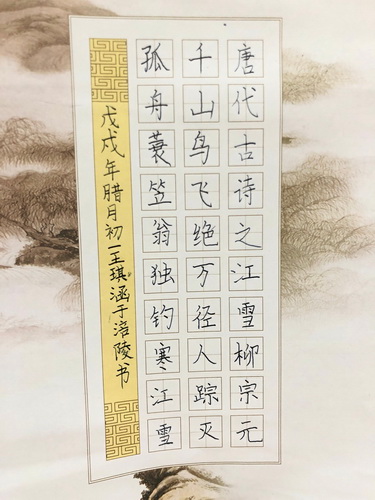 唐代古诗之江雪柳宗元
千山鸟飞绝万径人踪灭
孤舟蓑笠翁独钓寒江雪
戊戌年腊月初一王琪涵于涪陵书